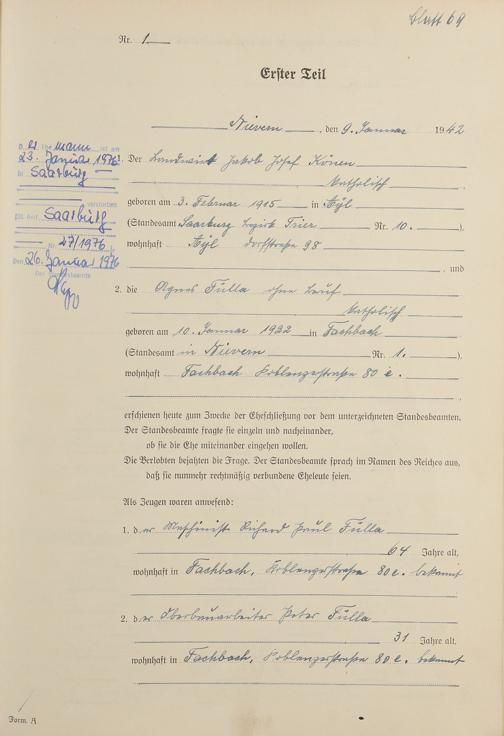 Blatt 69
Nr. 1
Erster Teil
Nievern, den 9. Januar 1942
D. Ehemann ist am
23. Januar 1976
in Saarburg
verstorben
Saarburg
Nr. 27/1976
Den 26. Januar 1976
Der Standesbeamte
1. Der Landwirt Jakob Josef Könen
katholisch
geboren am 3. Februar 1905 in Ayl
(Standesamt Saarburg Bezirk Trier Nr. 10.)
wohnhaft Ayl Dorfstraße 98
, und
2. die Agnes Fulla ohne Beruf
katholisch
geboren am 10. Januar 1922 in Fachbach
(Standesamt in Nievern Nr. 1.)
wohnhaft Fachbach Koblenzerstraße 80 e.
erschienen heute zum Zwecke der Eheschließung vor dem unterzeichneten Standesbeamten.
Der Standesbeamte fragte sie einzeln und nacheinander,
ob sie die Ehe miteinander eingehen wollen.
Die Verlobten bejahten die Frage. Der Standesbeamte sprach im Namen des Reiches aus,
daß sie nunmehr rechtmäßig verbundene Eheleute seien.
Als Zeugen waren anwesend:
1. der Maschinist Richard Paul Fulla
64 Jahre alt,
wohnhaft in Fachbach, Koblenzerstraße 80 e. bekannt
2. der Oberbauarbeiter Peter Fulla
31 Jahre alt,
wohnhaft in Fachbach, Koblenzerstraße 80 e. bekannt
Form. A